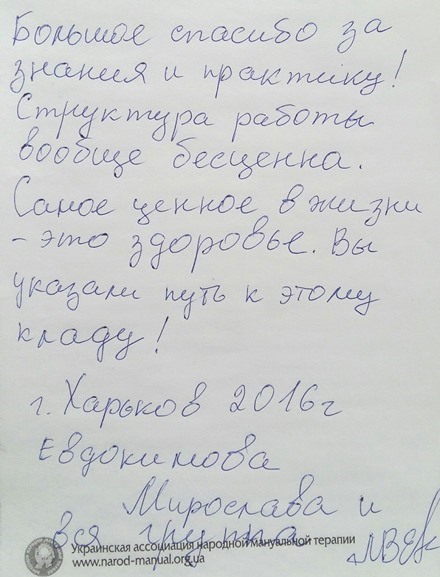 Большое спасибо за
знания и практику!
Структура работы
вообще бесценна.
Самое ценное в жизни
- это здоровье. Вы
указали путь к этому
кладу!
г. Харьков 2016г
Евдокимова
Мирослава и
вся группа
Украинская ассоциация народной мануальной терапии
www.narod-manual.org.ua